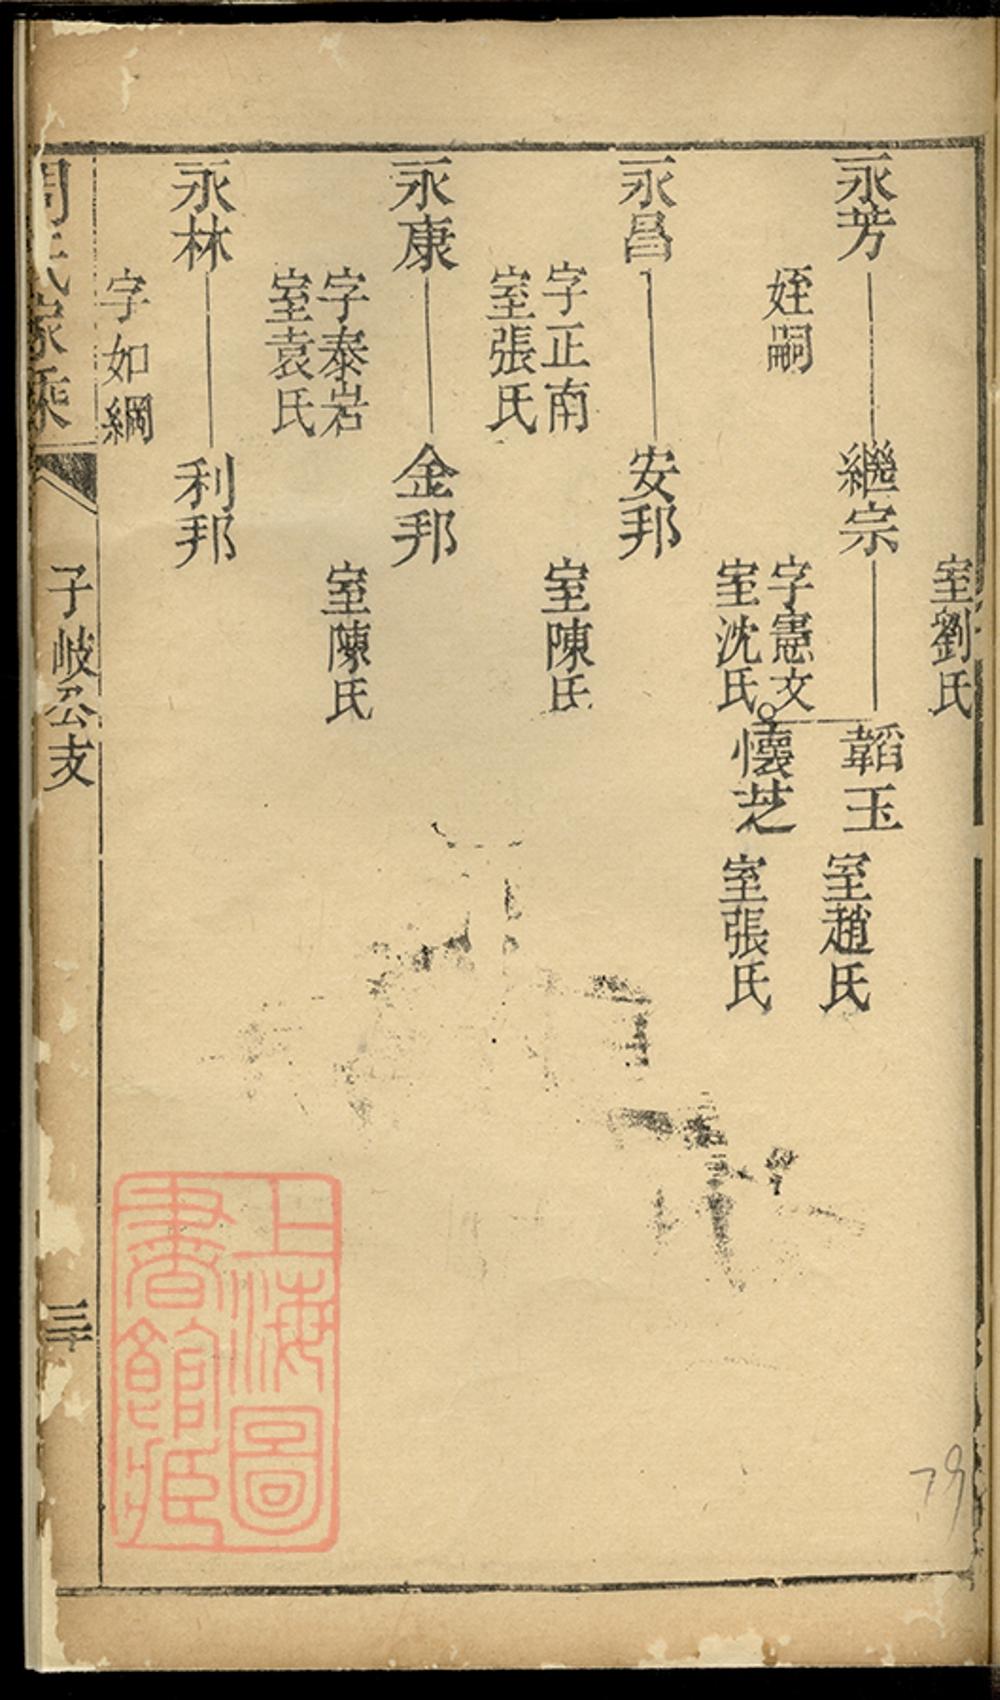 室劉氏
永芳
繼宗
韜玉
室趙氏
姪嗣
字憲文
室沈氏
懷芝
室張氏
永昌
安邦
字正南
室張氏
室陳氏
永康
金邦
字泰岩
室袁氏
室陳氏
永林
利邦
字如綱
周氏家乘
子岐公支
三十
上海圖
書館藏
79